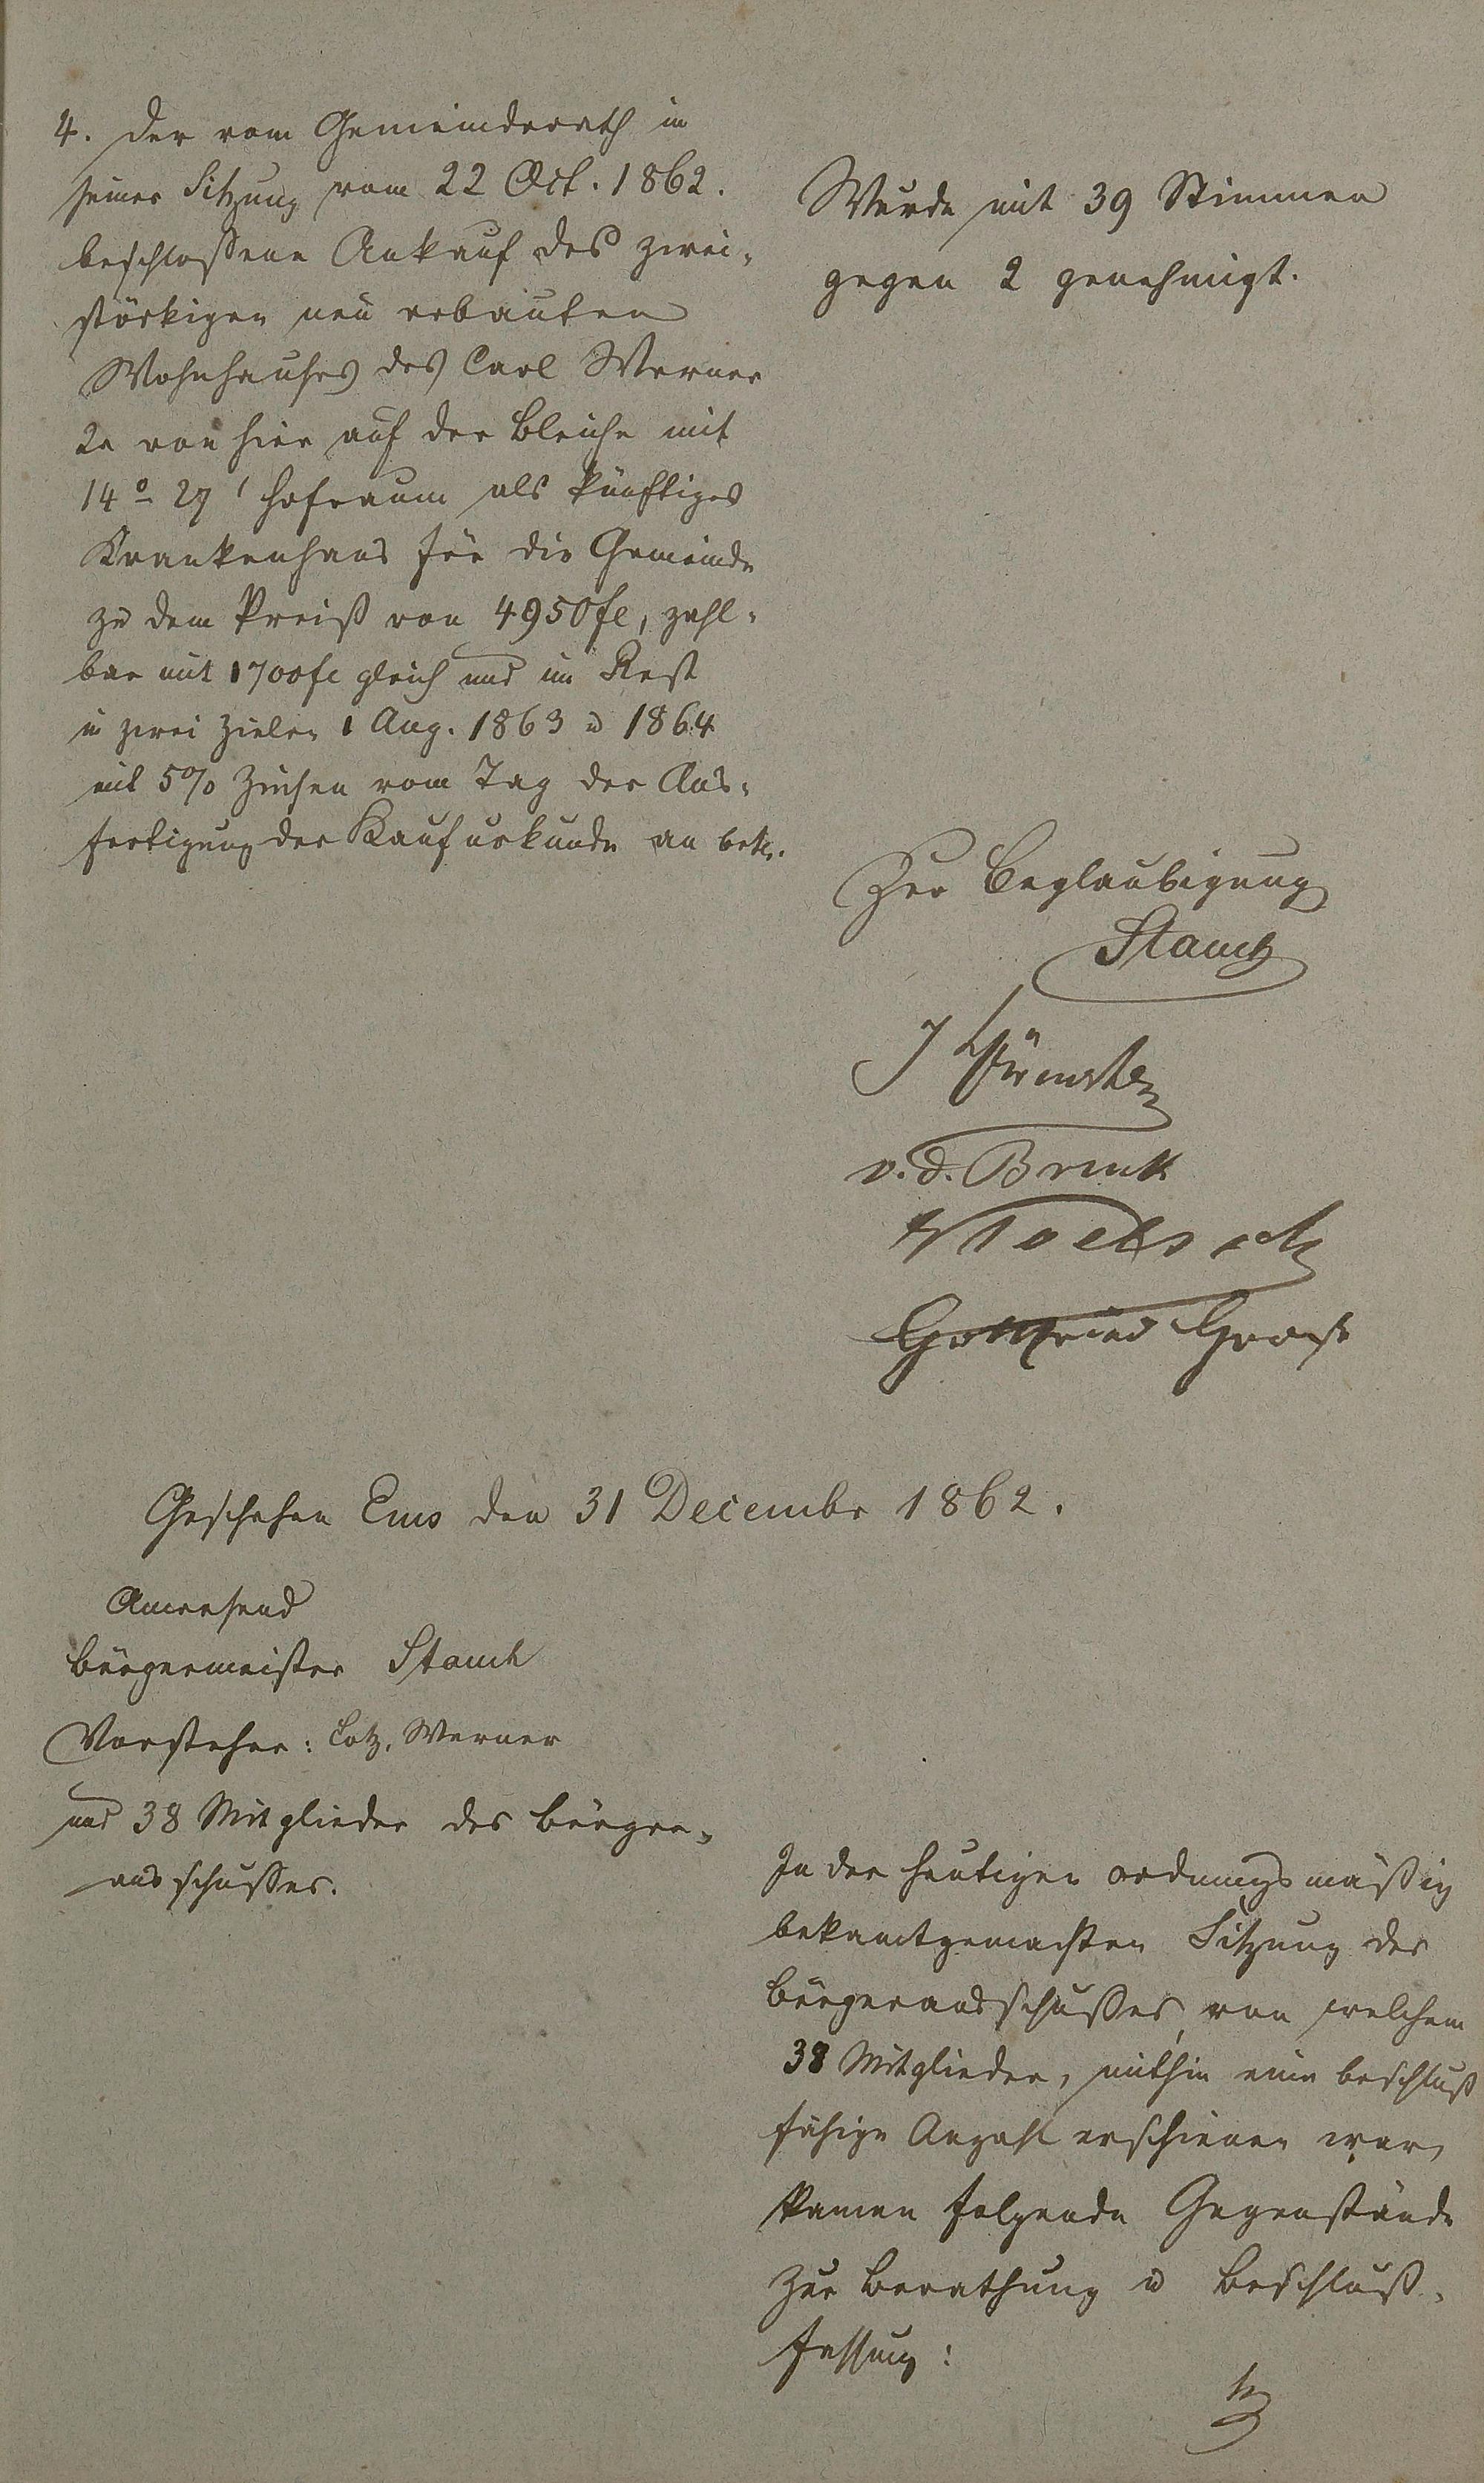 4. der vom Gemeinderath in
seiner Sitzung vom 22 Oct. 1862.
beschlossene Ankauf des zwei-
stöckigen neu erbauten
Wohnhauses des Carl Werner
2r von hier auf der Bleiche mit
14° 27' Hofraum als künftiges
Krankenhaus für die Gemeinde
zu dem Preiß von 4950 fl, zahl-
bar mit 1700 fl gleich und im Rest
in zwei Zielen 1 Aug. 1863 u 1864
mit 5% Zinsen vom Tag der Aus-
fertigung der Kaufurkunde an betr.
Wurde mit 39 Stimmen
gegen 2 genehmigt.
Zur Beglaubigung
Stauch
J
v. d. Bruck
Gottfried
Geschehen Ems den 31 Decembr 1862.
Anwesend
Bürgermeister Stauch
Vorsteher: Lotz, Werner
und 38 Mitglieder des Bürger-
ausschusses.
In der heutigen ordnungsmäßig
bekanntgemachten Sitzung des
Bürgerausschusses, von welchem
38 Mitglieder, mithin eine beschluß
fähige Anzahl erschienen war,
kamen folgende Gegenstände
zur Berathung u Beschluß-
fassung: